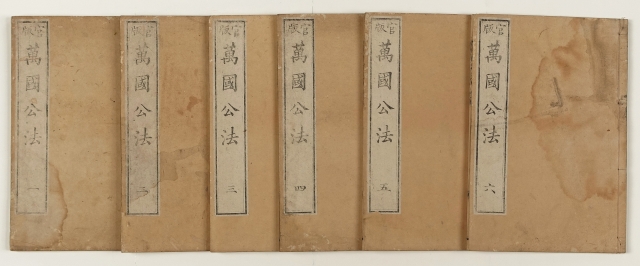 官版
萬國公法
一
官版
萬國公法
二
官版
萬國公法
三
官版
萬國公法
四
官版
萬國公法
五
官版
萬國公法
六